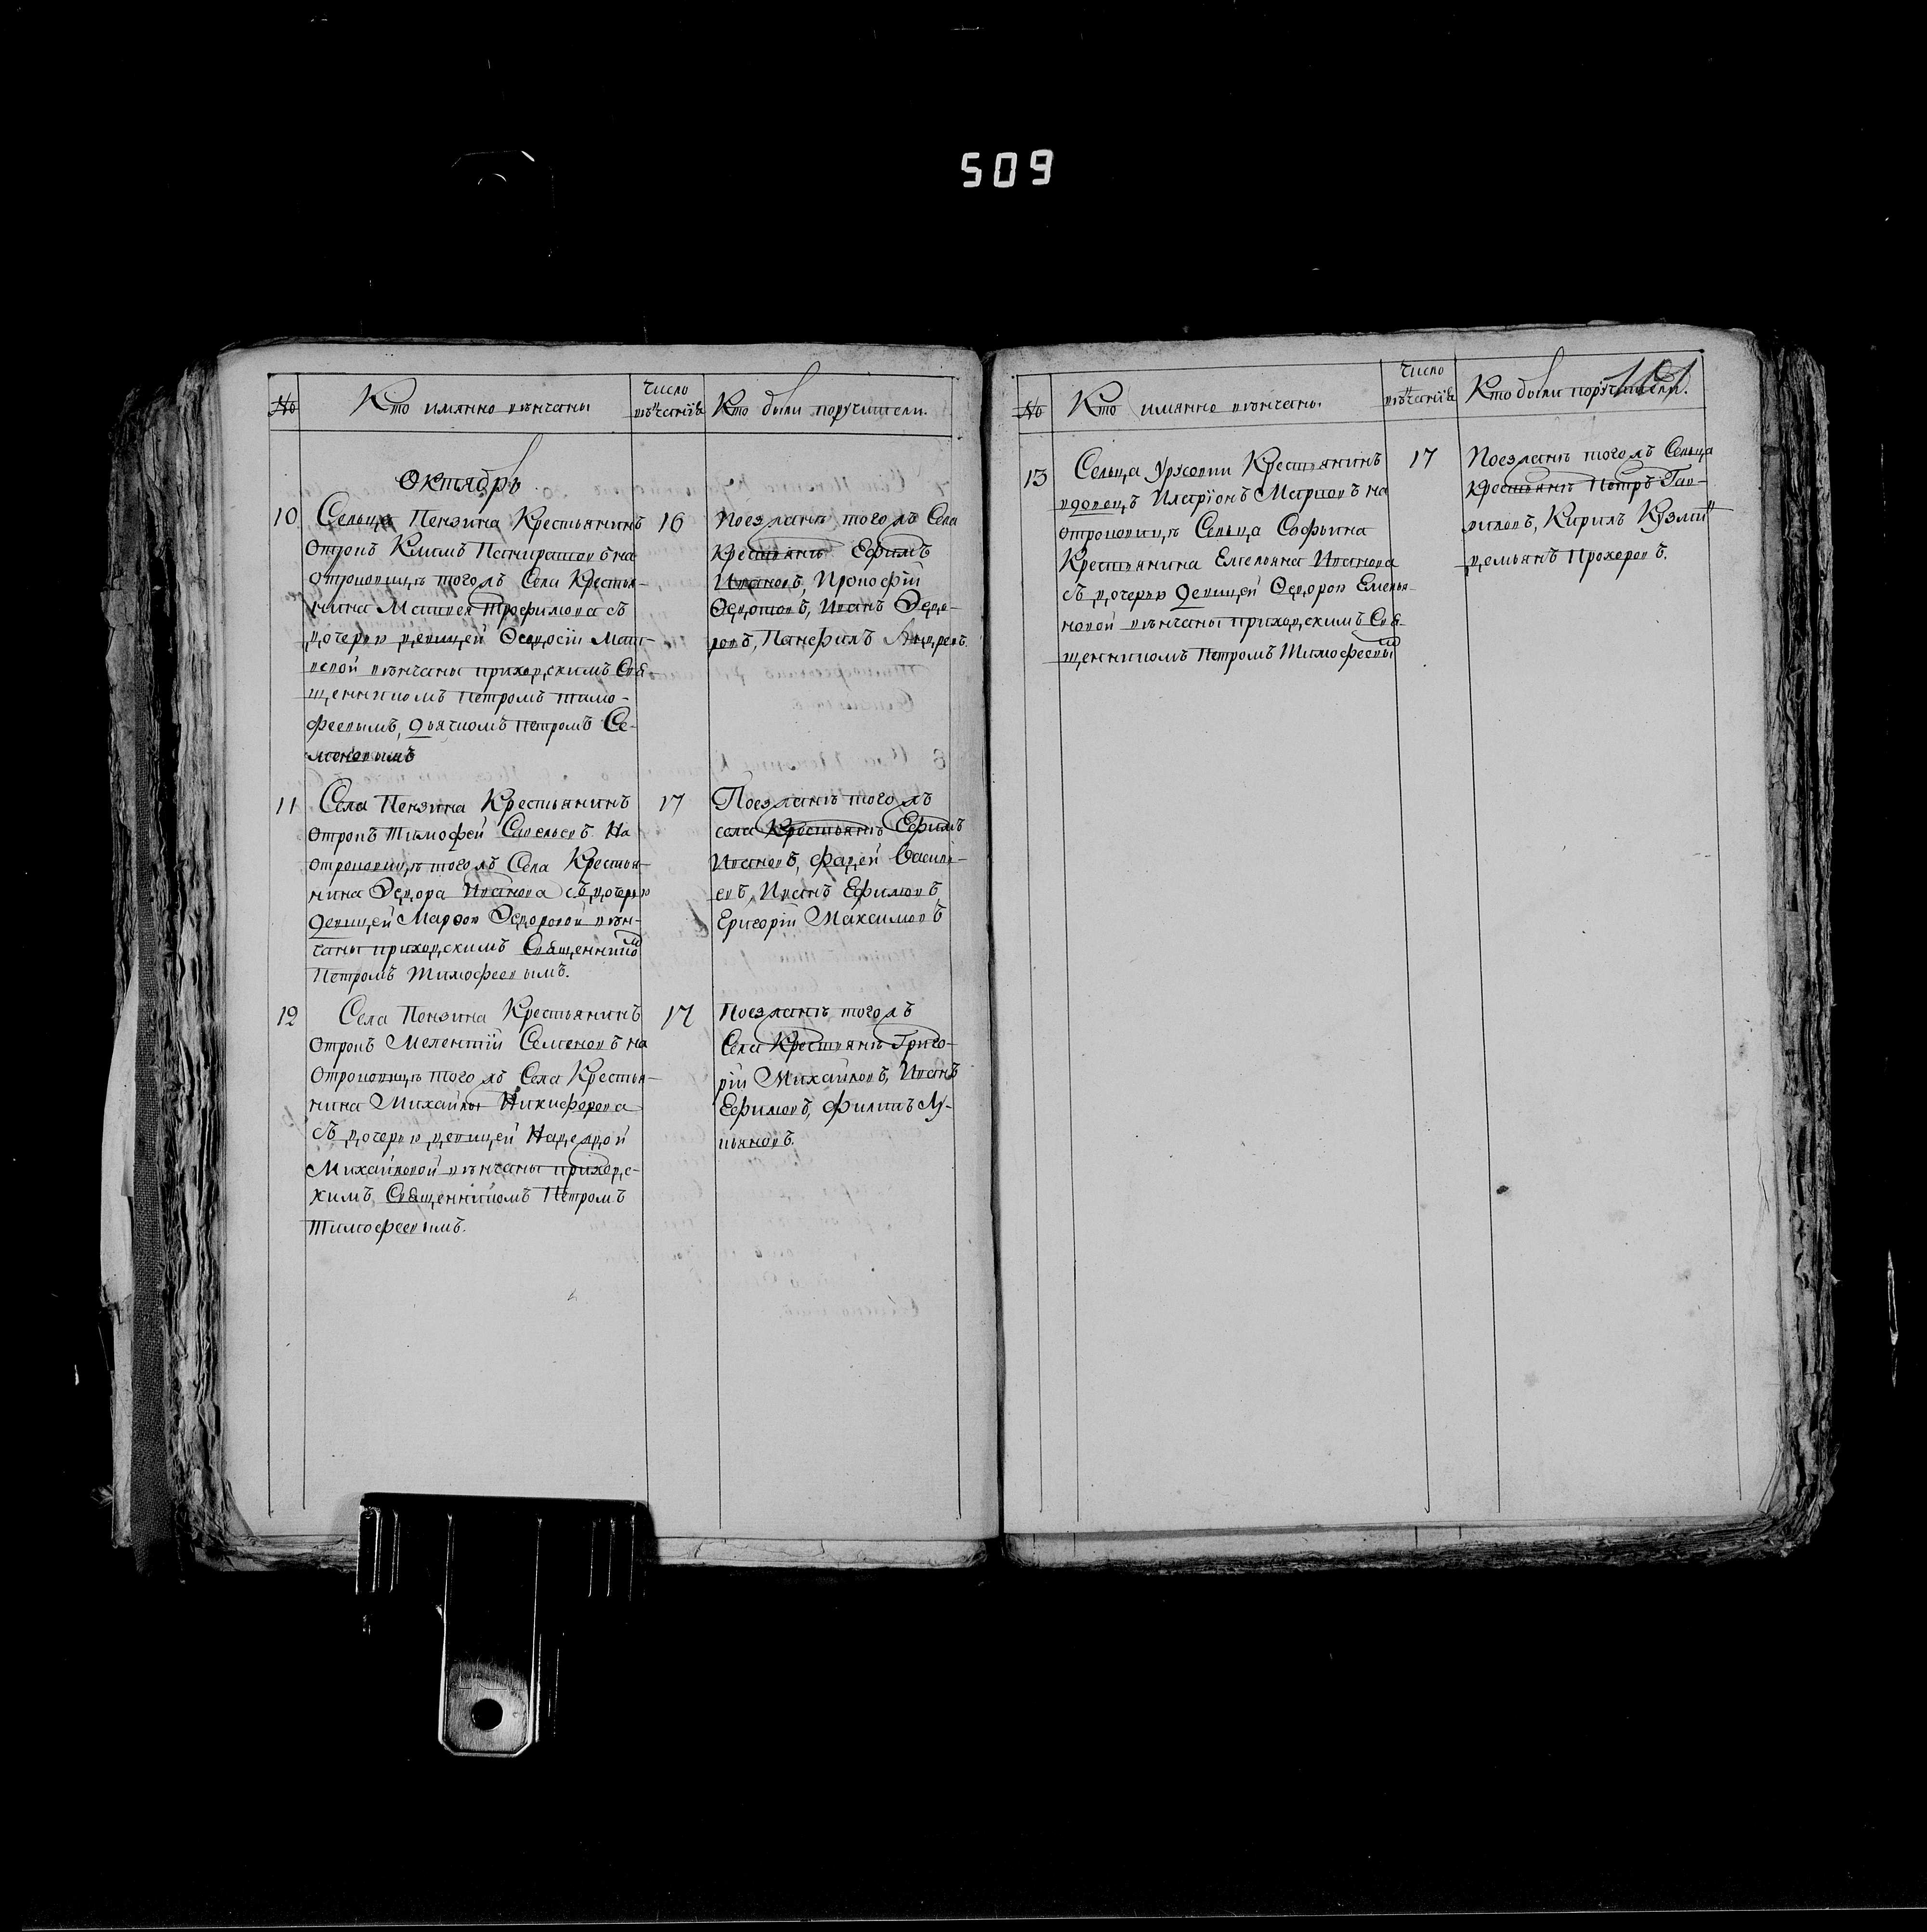 509
№
Кто имянно вѣнчаны
Число вѣнчанiѣвъ
Кто были поручители.
Октябрь
10
Сельца Пензина Крестьянинъ
отрокъ Климъ Панкратовъ на
отроковицѣ тогожъ Села Крестья-
нина Матвея Трофимова съ
дочерью девицей Ѳедосiи Мат-
веевой вѣнчаны приходскимъ Свя
щенникомъ Петромъ Тимо-
феевымъ, дьячкомъ Петромъ Се-
меновымъ
16
Поезжанѣ тогожъ Села
Крестьянѣ Ефимъ
Ивановъ, Прокофiй
Ѳедотовъ, Иванъ Ѳедо-
ровъ, Панфилъ Андреевъ.
11
Села Пензина Крестьянинъ
отрокъ Тимофей Савельевъ На
отроковицѣ тогожъ Села Крестья-
нина Ѳедора Иванова съ дочерью
девицей Марѳою Ѳедоровой вѣн-
чаны приходскимъ Священником
Петромъ Тимофеевымъ.
17
Поезжанѣ тогожъ
села Крестьянѣ Ефимъ
Ивановъ, Фадей Васил-
евъ, Иванъ Ефимовъ
Григорiй Максимовъ
12
Села Пензина Крестьянинъ
отрокъ Мелентiй Семеновъ на
отроковицѣ тогожъ Села Крестья-
нина Михайлы Никифорова
съ дочерью девицей Надеждой
Михайловой вѣнчаны приходс-
кимъ Священникомъ Петромъ
Тимофеевымъ.
17
Поезжанѣ тогожъ
Села Крестьянѣ Григо-
рiй Михайловъ, Иванъ
Ефимовъ, Филипъ Лу-
кьяновъ.
№
Кто имянно вѣнчаны.
Число вѣнчанiѣвъ
Кто были поручители.
13
Сельца Крестьянинъ
вдовецъ Иларiонъ Марковъ на
отроковицѣ Сельца Софьина
Крестьянина Емельяна Иванова
съ дочерью девицей Ѳедорою Емелья-
новой вѣнчаны приходскимъ Свя-
щенникомъ Петромъ Тимофеевым
17
Поезжанѣ тогожъ Сельца
Крестьянѣ Петръ Гав-
риловъ, Кирилъ Кузмин
демьянъ Прохоровъ.